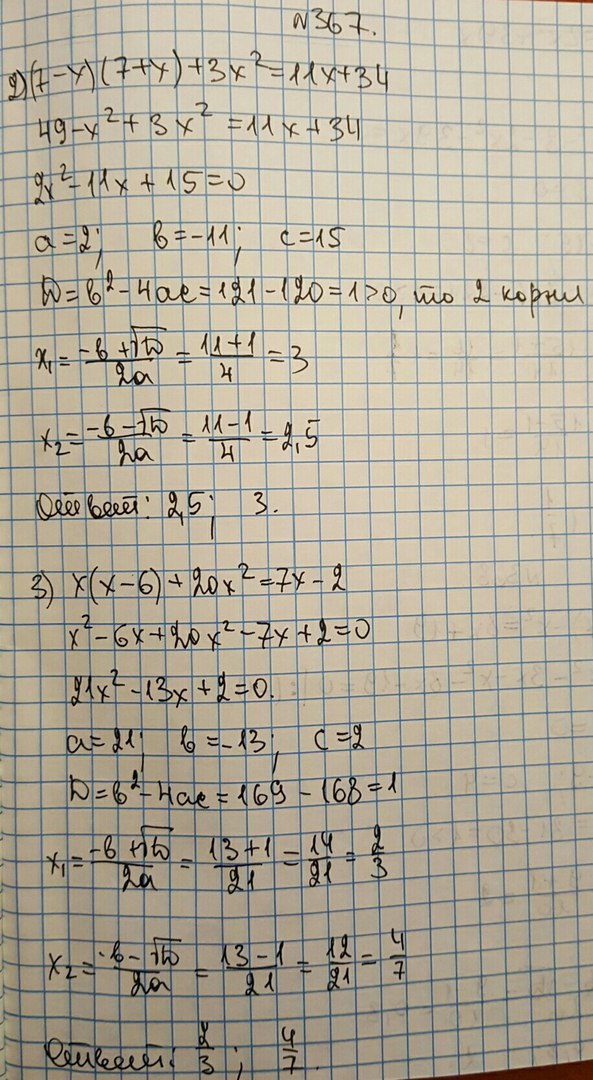 №367.
2) (7-x)(7+x)+3x²=11x+34
49-x²+3x²=11x+34
2x²-11x+15=0
a=2; b=-11; c=15
D=b²-4ac=121-120=1>0, то 2 корня
x₁=(-b+√D)/2a=(11+1)/4=3
x₂=(-b-√D)/2a=(11-1)/4=2,5
Ответ: 2,5; 3.
3) x(x-6)+20x²=7x-2
x²-6x+20x²-7x+2=0
21x²-13x+2=0.
a=21; b=-13; c=2
D=b²-4ac=169-168=1
x₁=(-b+√D)/2a=(13+1)/21=14/21=2/3
x₂=(-b-√D)/2a=(13-1)/21=12/21=4/7
Ответ: 2/3; 4/7.